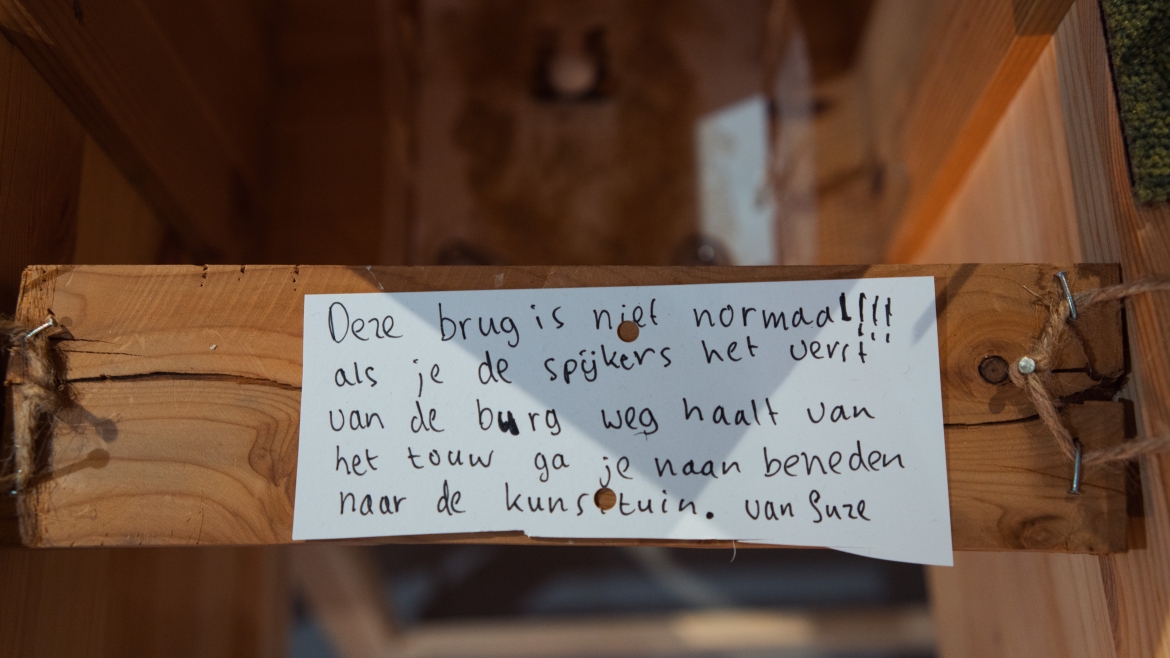 Deze brug is niet normaal!!!!
als je de spijkers het verst
van de burg weg haalt van
het touw ga je naan beneden
naar de kunstuin. van Suze